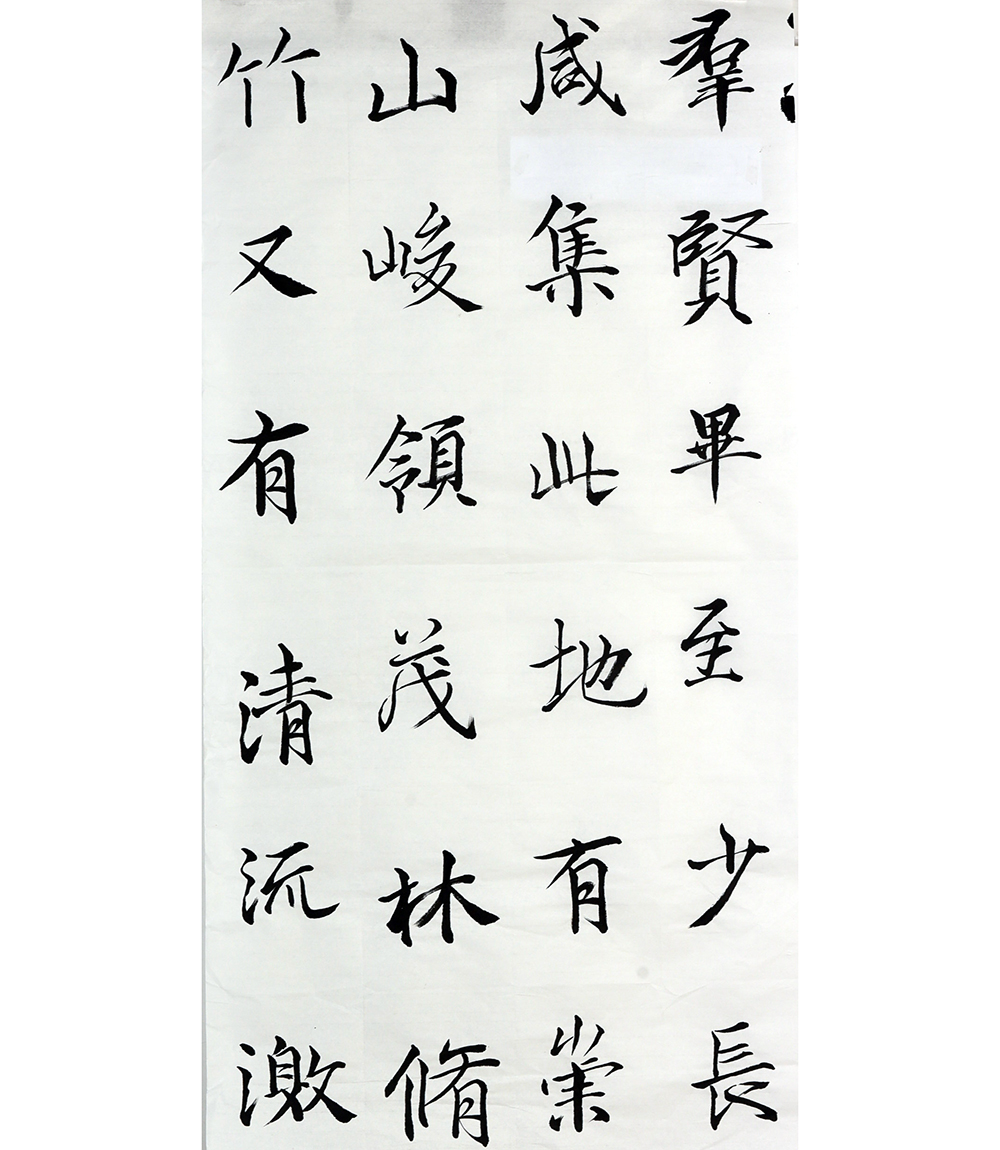 羣賢畢至少長
咸集此地有崇
山峻領茂林脩
竹又有清流激